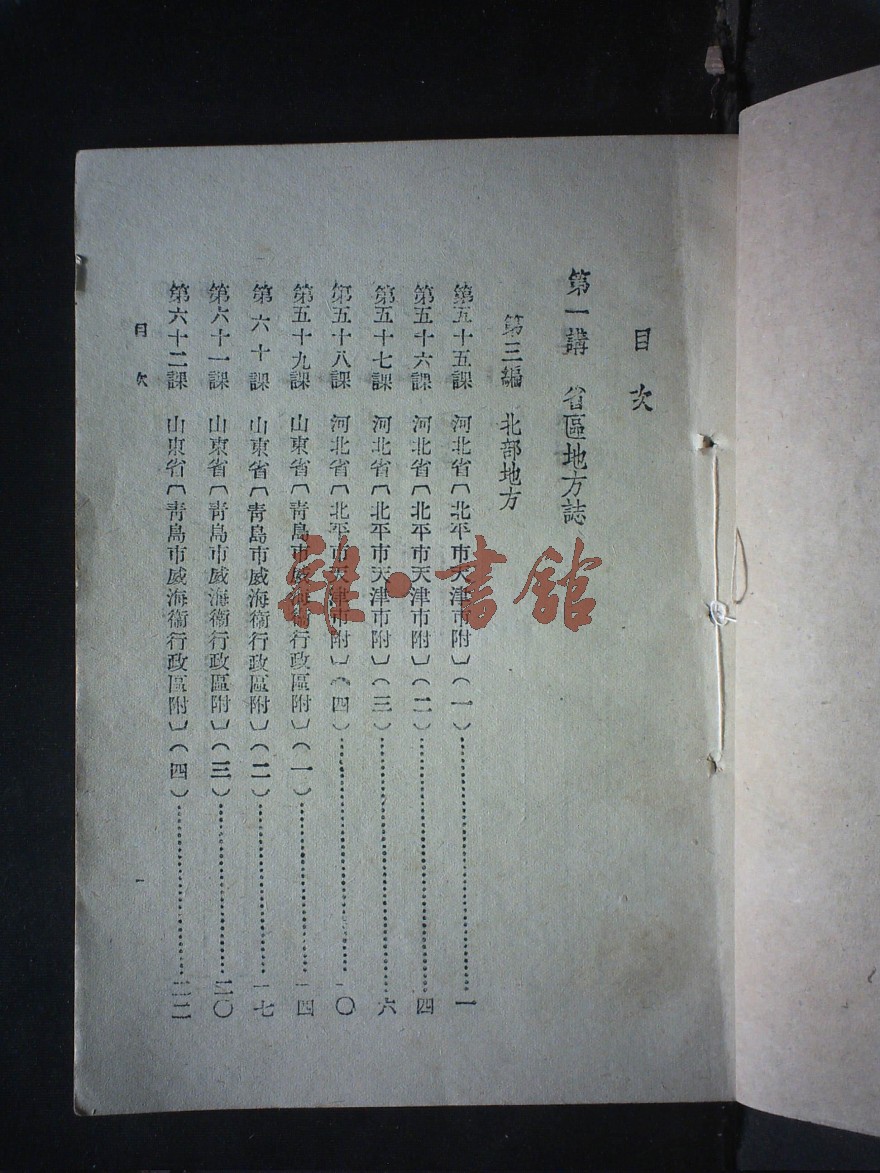 目次
第一講　省區地方誌
第三編　北部地方
第五十五課　河北省〔北平市天津市附〕(一)……一
第五十六課　河北省〔北平市天津市附〕(二)……四
第五十七課　河北省〔北平市天津市附〕(三)……六
第五十八課　河北省〔北平市天津市附〕(四)……一〇
第五十九課　山東省〔靑島市威海衞行政區附〕(一)……一四
第六十課　山東省〔靑島市威海衞行政區附〕(二)……一七
第六十一課　山東省〔靑島市威海衞行政區附〕(三)……二〇
第六十二課　山東省〔靑島市威海衞行政區附〕(四)……二二
目次
一
雜·書館